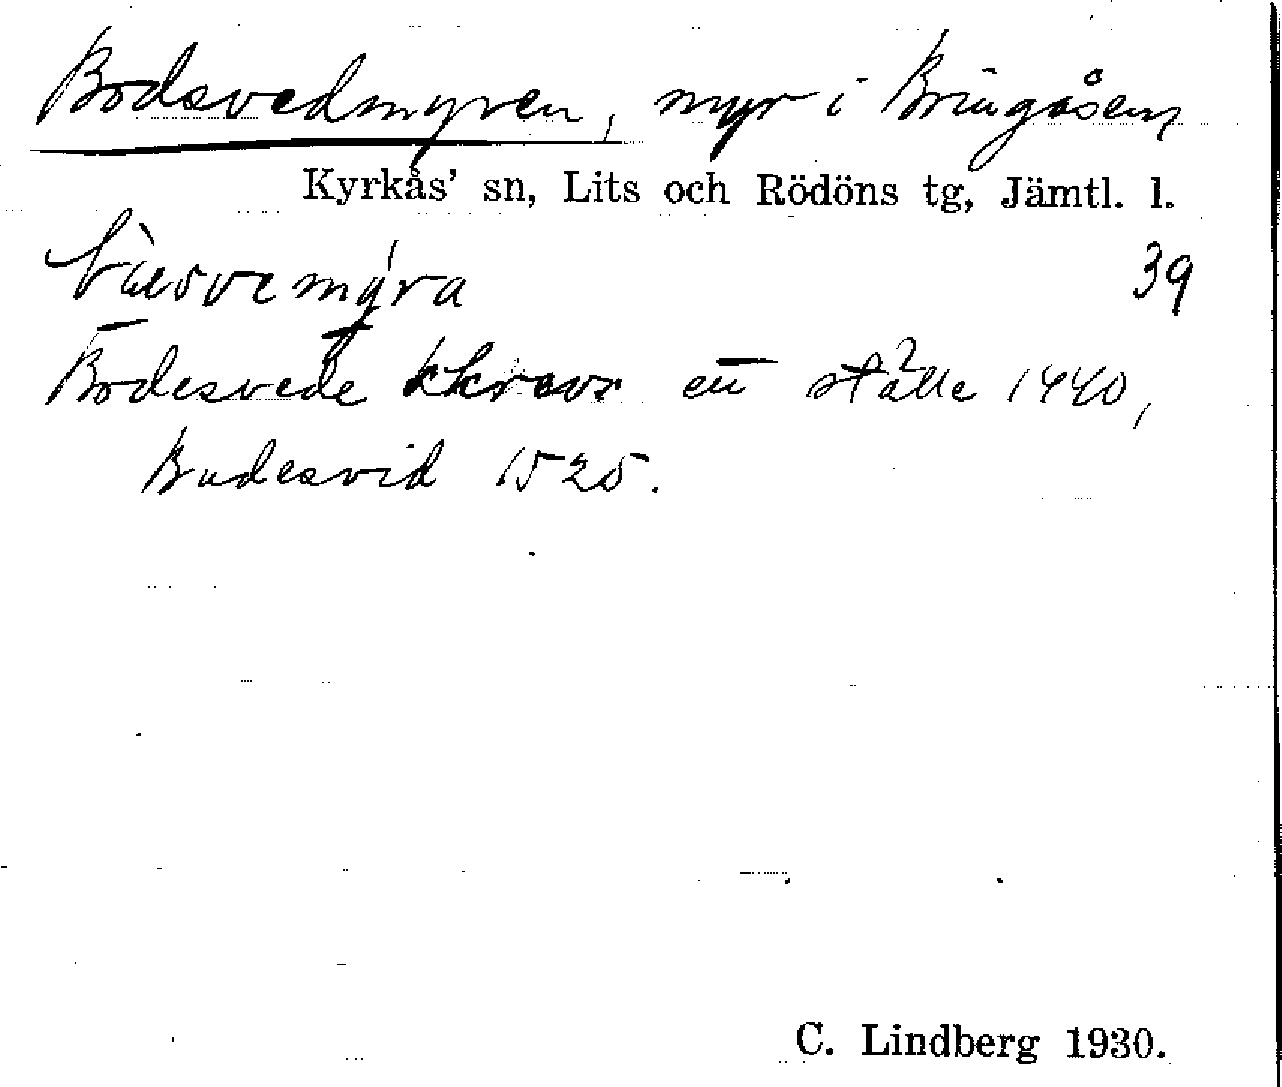 Bodsvedmyren, myr i Bringåsen
Kyrkås' sn, Lits och Rödöns tg, Jämtl. l.
39
Bodesvede ett ställe 1440,
Budesvid 1525.
C. Lindberg 1930.